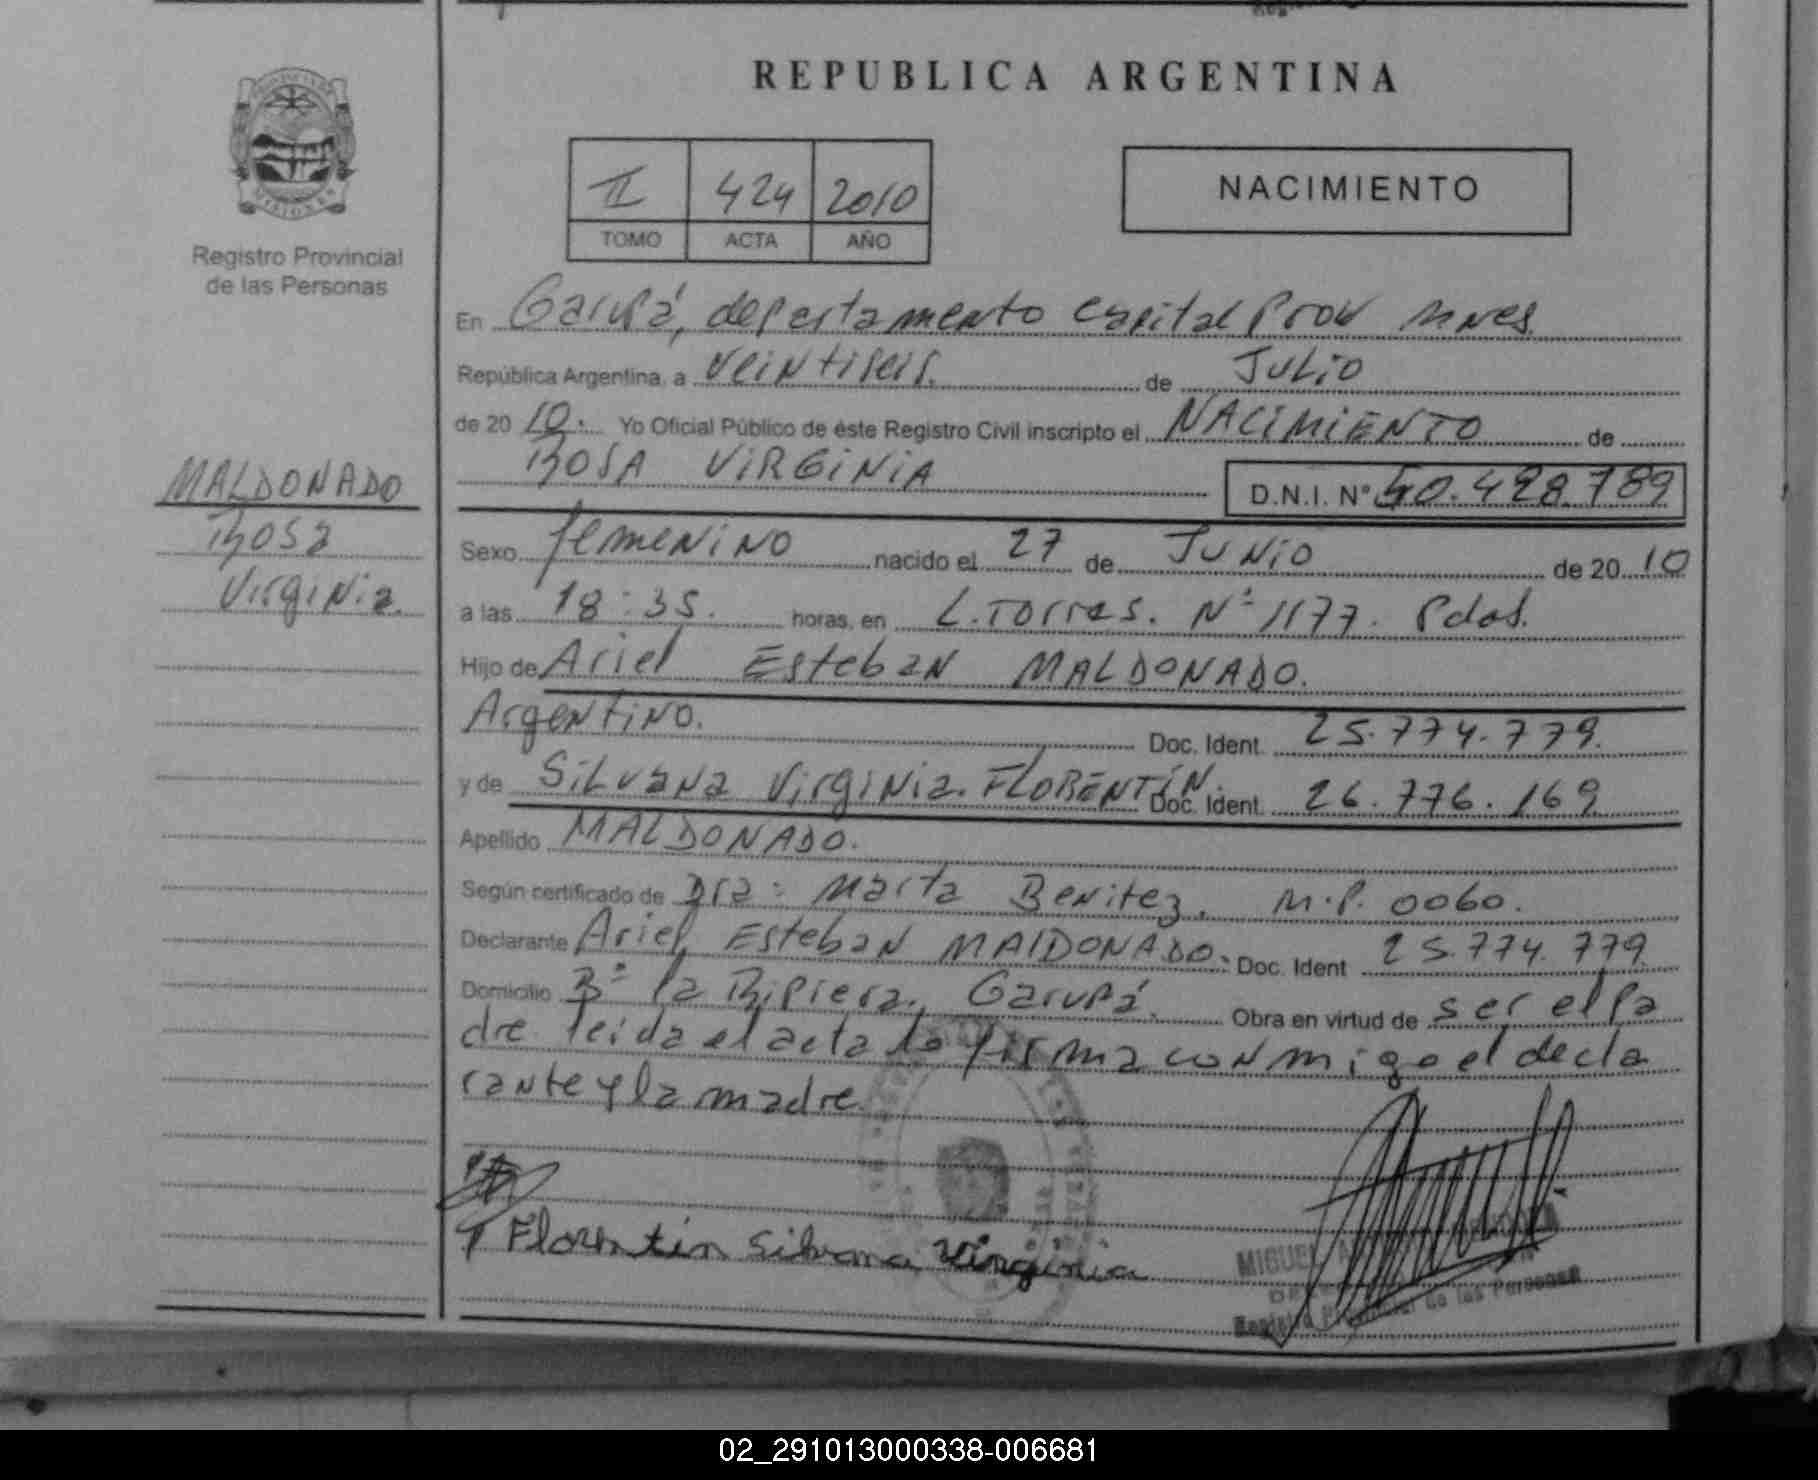 REPUBLICA ARGENTINA
II 424 2010
TOMO ACTA AÑO
NACIMIENTO
PROVINCIA DE
MISIONES
Registro Provincial
de las Personas
MALDONADO
Rosa
Virginia.
En Garupá, departamento capital Prov Mnes.
República Argentina, a veintiseis. de JULIO
de 20 10. Yo Oficial Público de éste Registro Civil inscripto el NACIMIENTO de
ROSA VIRGINIA D.N.I. Nº 50.428.789
Sexo femenino nacido el 27 de JUNIO de 20 10
a las 18:35. horas, en L. Torres. Nº 1177. Pdas.
Hijo de Ariel Esteban MALDONADO.
Argentino. Doc. Ident. 25.774.779.
y de Silvana Virginia. FLORENTÍN. Doc. Ident. 26.776.169
Apellido MALDONADO.
Según certificado de Dra: Marta Benitez. M.P. 0060.
Declarante Ariel Esteban MALDONADO. Doc. Ident 25.774.779
Domicilio Bº la Ripiera, Garupá. Obra en virtud de ser el pa
dre leida el acta la firma conmigo el decla
rante y la madre
Florentín Silvana Virginia
MIGUEL
Registro Provincial de las Personas
02_291013000338-006681